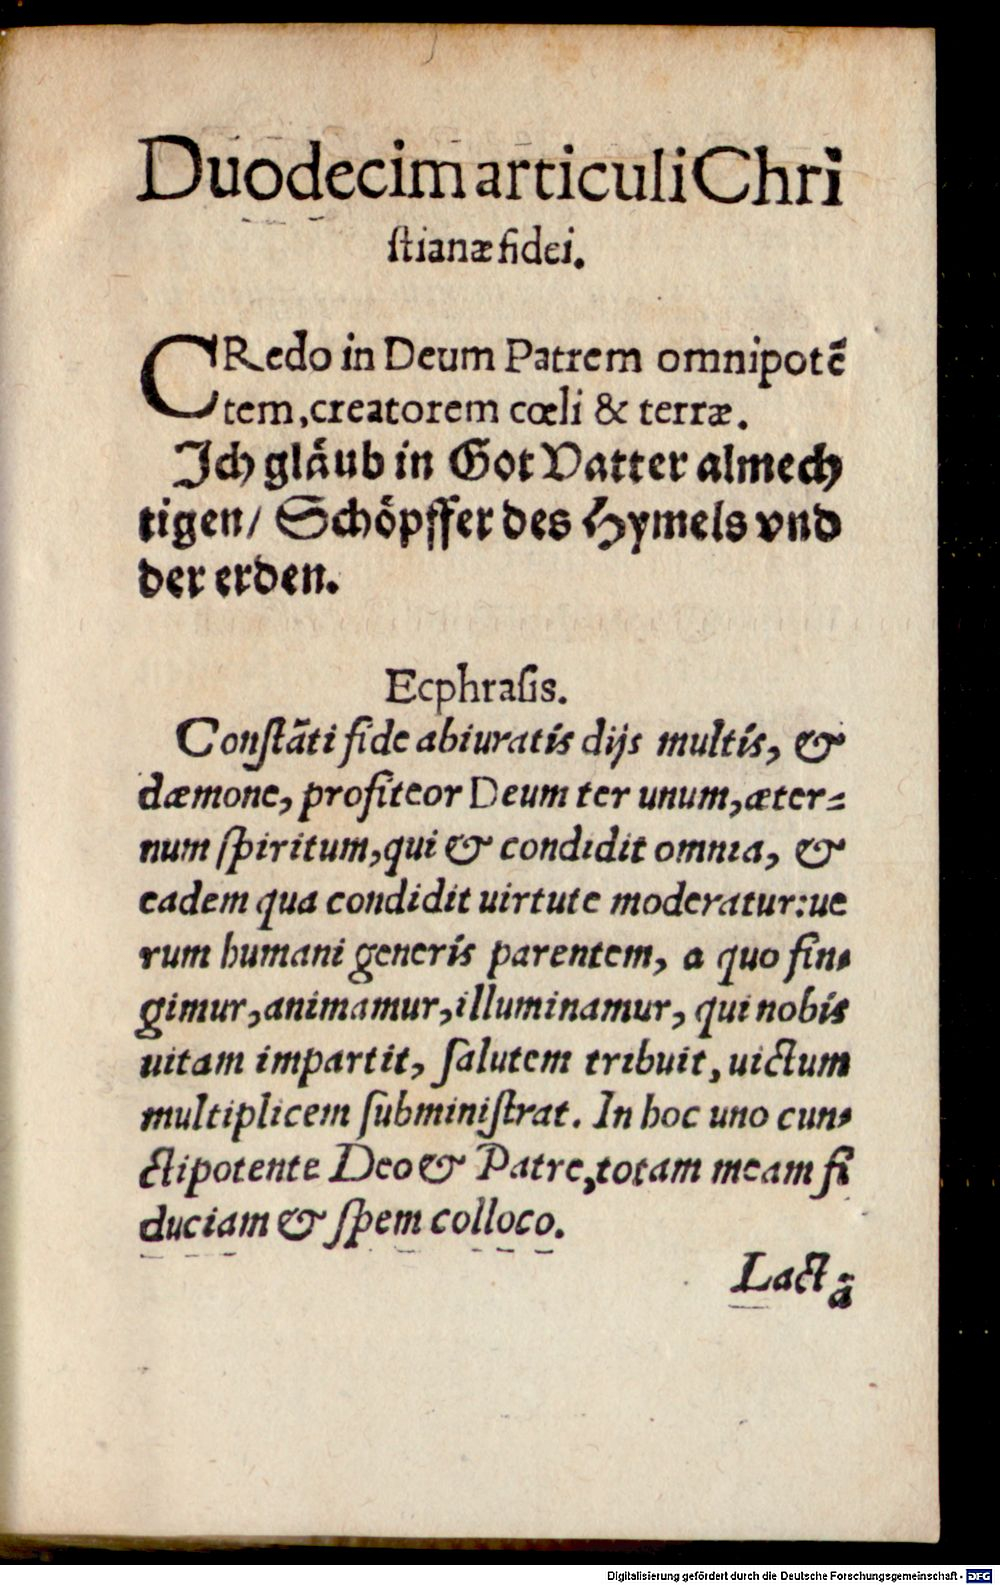 Duodecim articuli Chri
stianæ fidei.
CRedo in Deum Patrem omnipotē
tem, creatorem cœli & terræ.
Ich glaͤub in Got Vatter almech
tigen/ Schoͤpffer des Hymels vnd
der erden.
Ecphrasis.
Constāti fide abiuratis dijs multis, &
dæmone, profiteor Deum ter unum, æter-
num spiritum, qui & condidit omnia, &
eadem qua condidit uirtute moderatur: ue
rum humani generis parentem, a quo fin-
gimur, animamur, illuminamur, qui nobis
uitam impartit, salutem tribuit, uictum
multiplicem subministrat. In hoc uno cun-
ctipotente Deo & Patre, totam meam fi
duciam & spem colloco.
Lactā
Digitalisierung gefördert durch die Deutsche Forschungsgemeinschaft - DFG